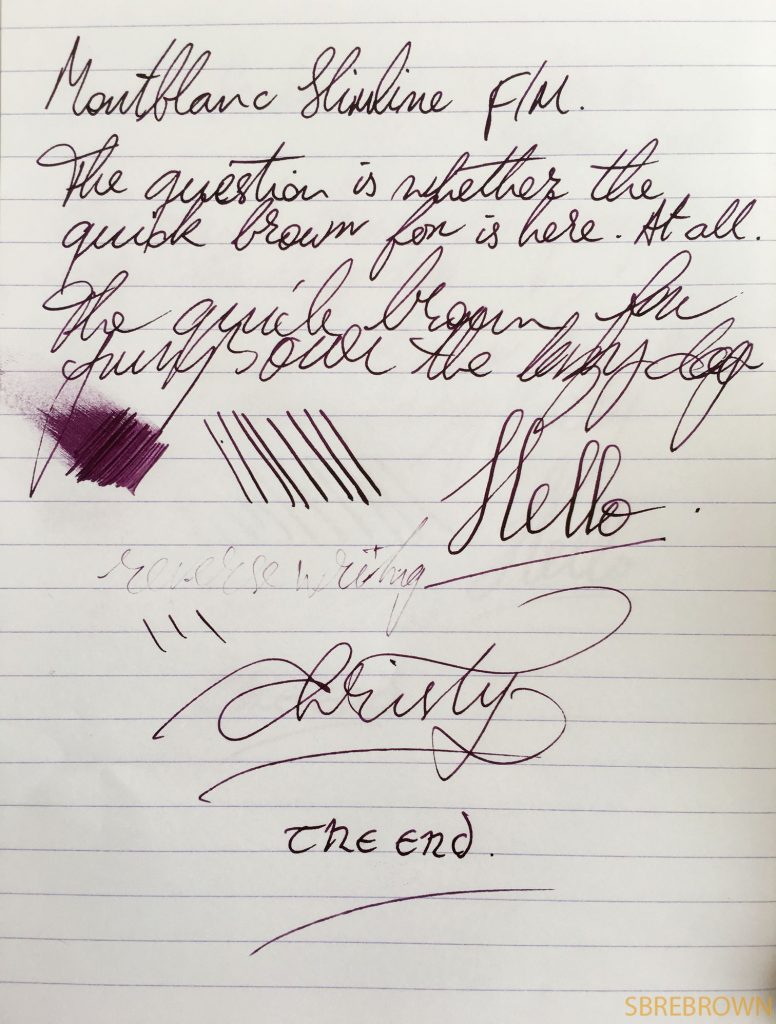 Montblanc Slimline F/M.
The question is whether the
quick brown fox is here. At all.
The quick brown fox
jumps over the lazy dog
Hello.
reverse writing
Christy
The End.
SBREBROWN